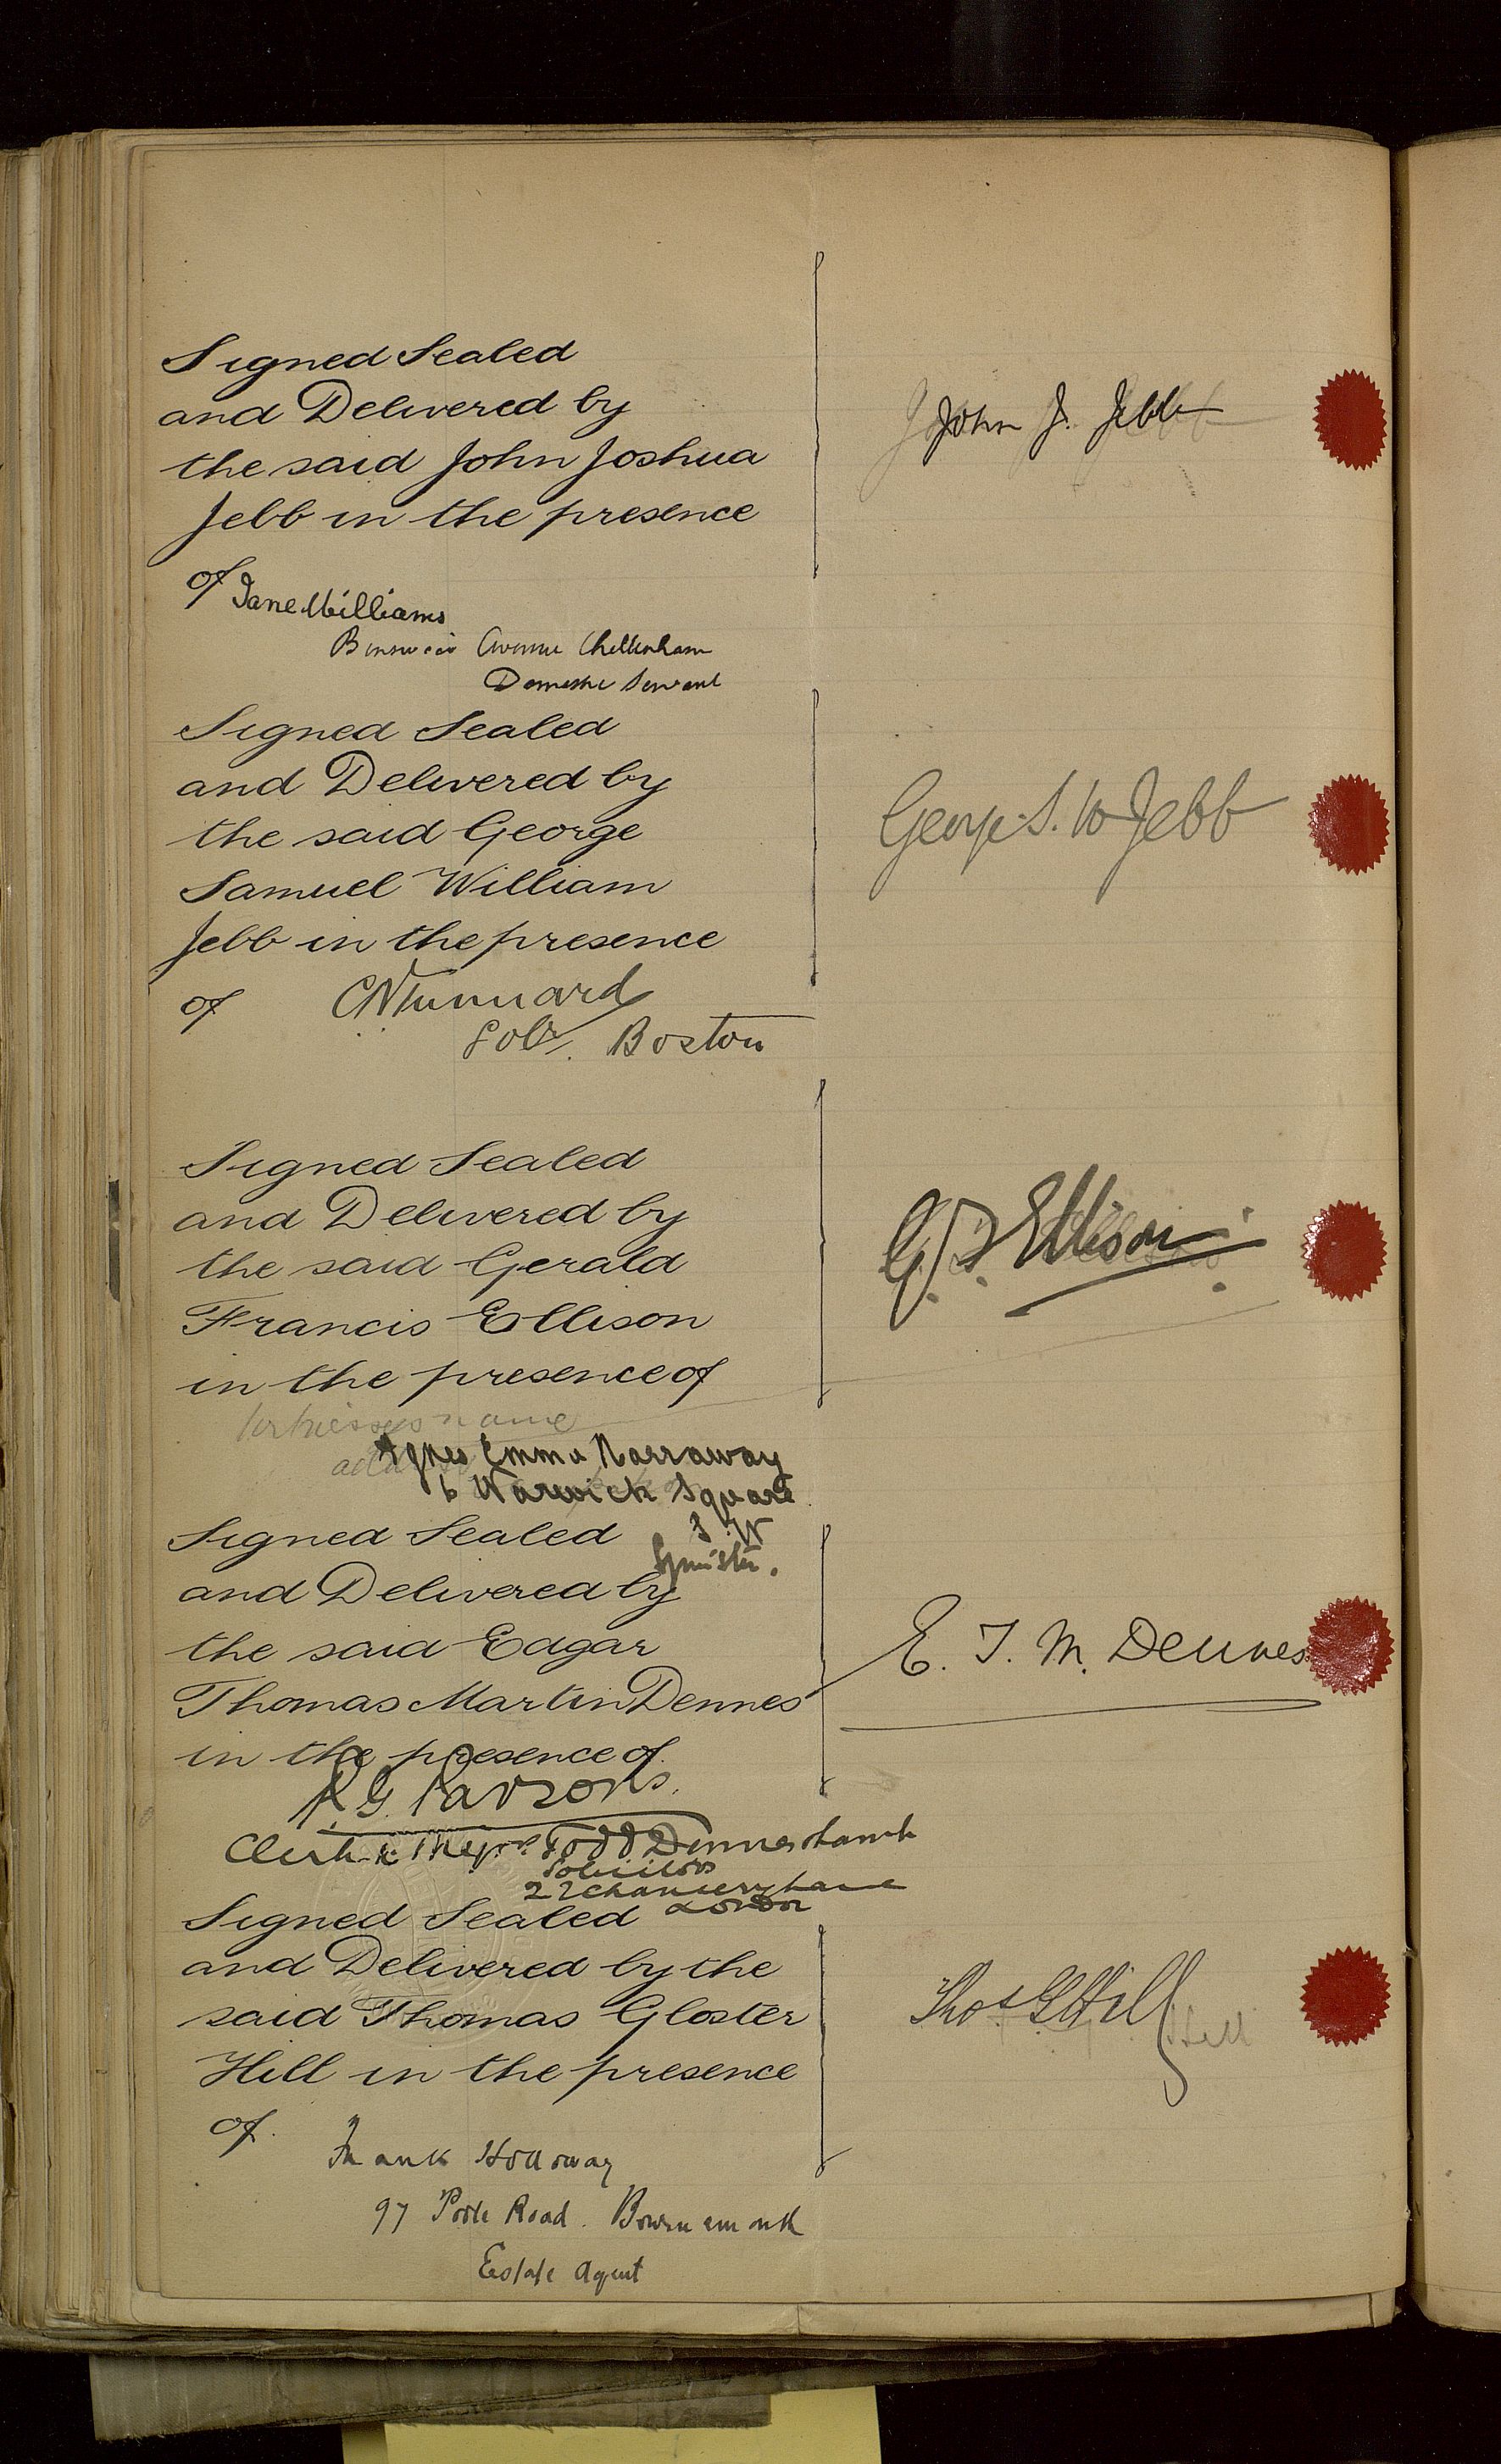 Signed Sealed
and Delivered by
the said John Joshua
Jebb in the presence
of Jane Williams
Avenue Cheltenham
Domestic Servant
John J. Jebb
Signed Sealed
and Delivered by
the said George
Samuel William
Jebb in the presence
of
Solr. Boston
George S. W Jebb
Signed Sealed
and Delivered by
the said Gerald
Francis Ellison
in the presence of
witnesses name
Agnes Emma Narraway
6 Warwick Square
S.W
Spinster.
G. F. Ellison
Signed Sealed
and Delivered by
the said Edgar
Thomas Martin Dennes
in the presence of
R. G. Parsons.
Clerk to Messrs Todd Dennes & Lamb
Solicitors
22 Chancery Lane
London
E. T. M. Dennes
Signed Sealed
and Delivered by the
said Thomas Gloster
Hill in the presence
of.
Frank Holloway
97 Poole Road. Bournemouth
Estate Agent
Thos G Hill